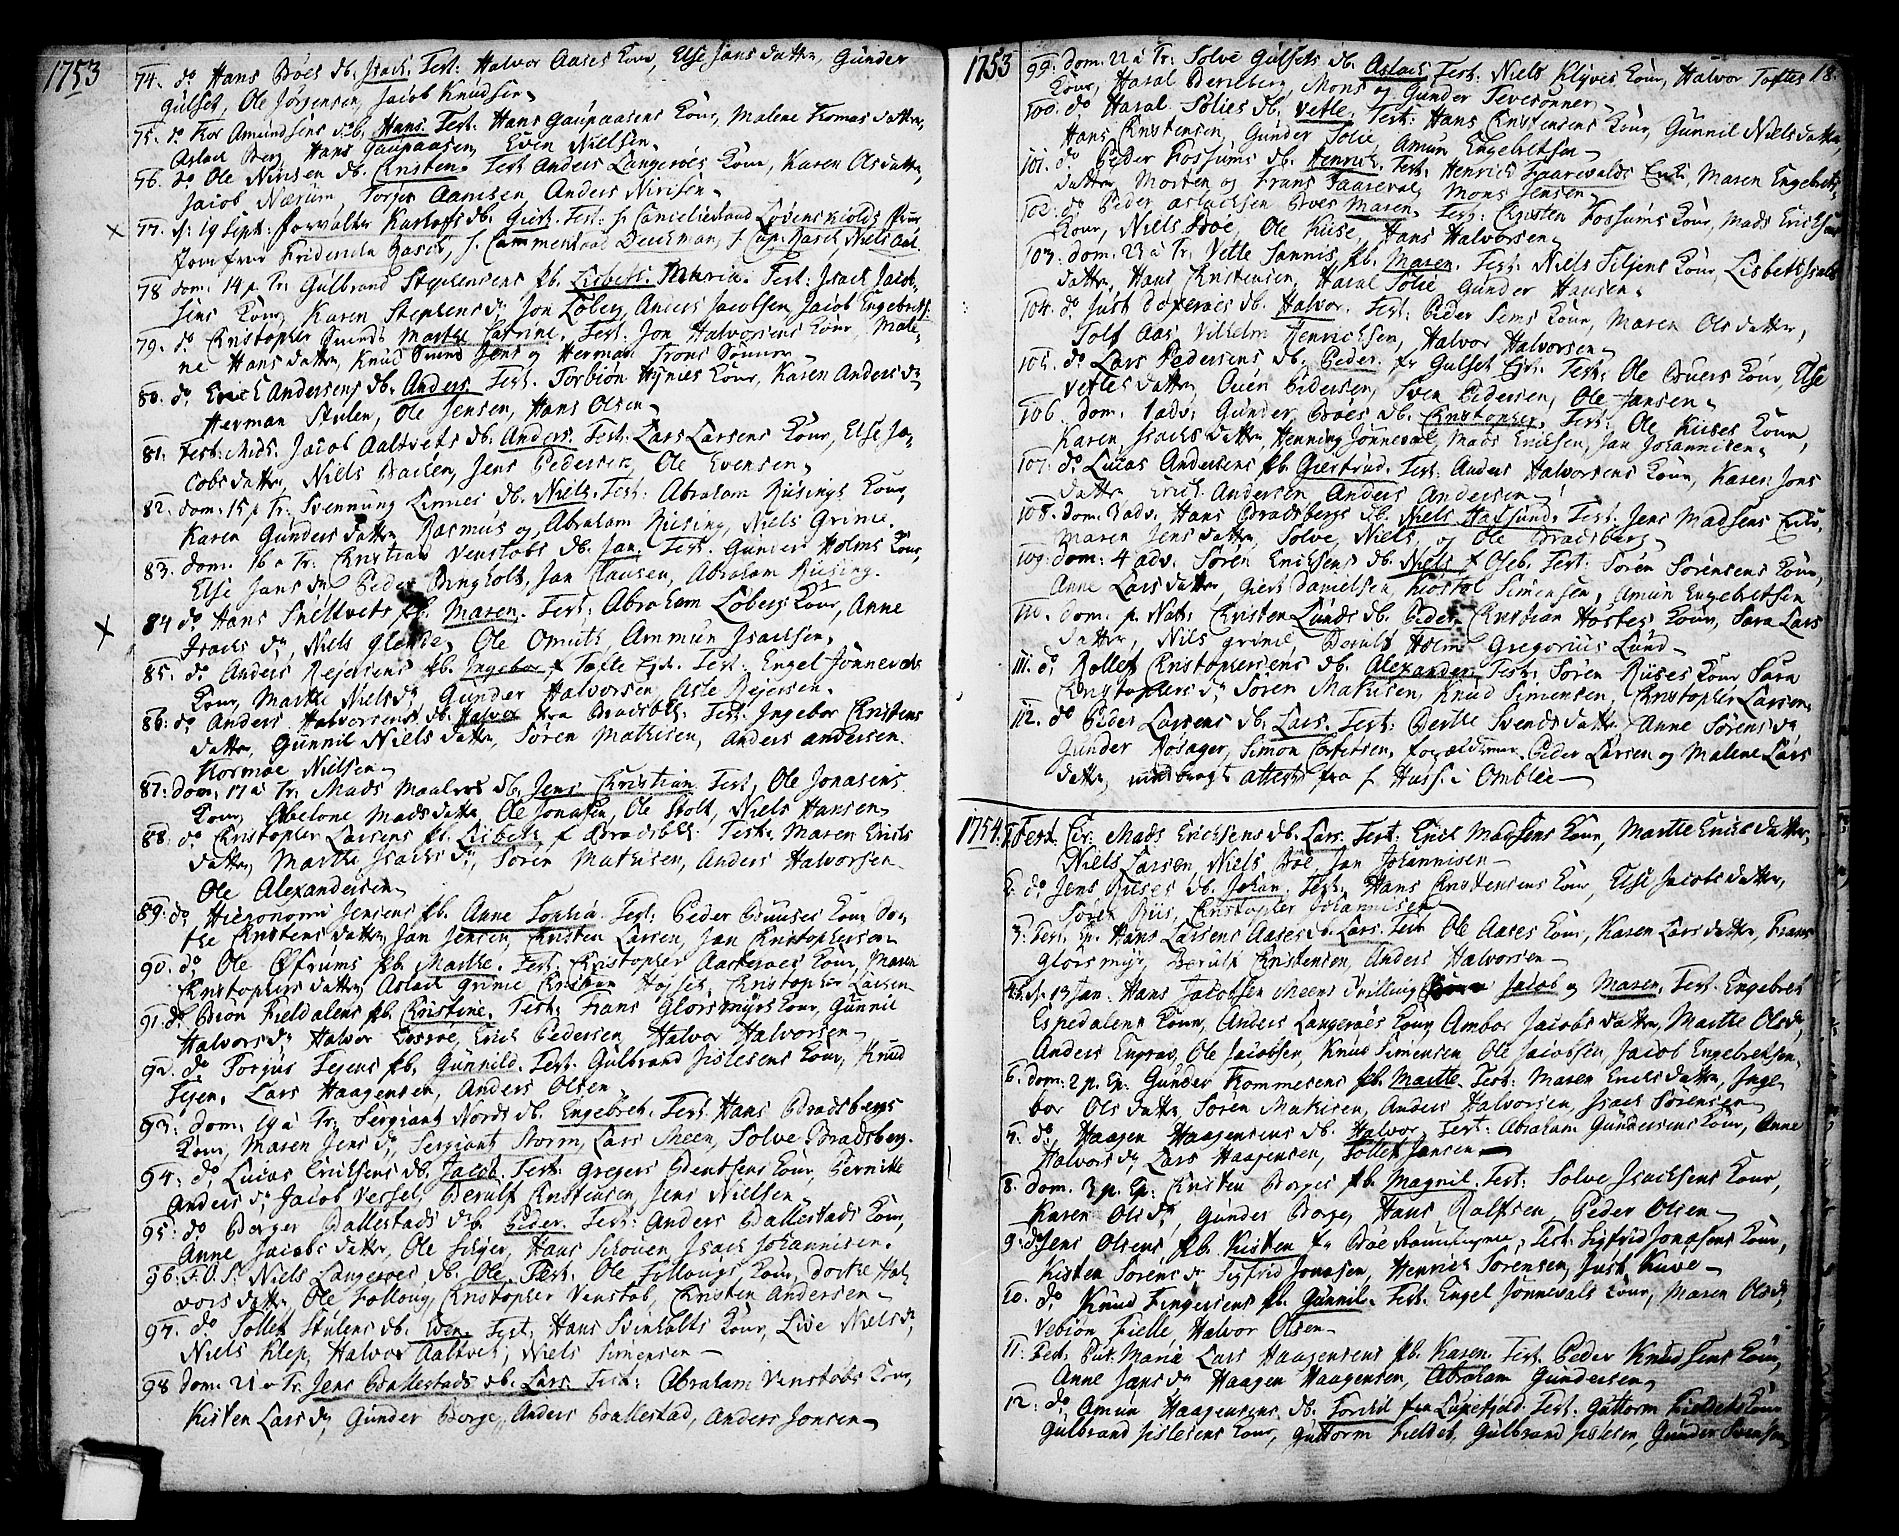 1753
74. do Hans Böes db. Isach. Test: Halvor Aases Kone, Else Jansdatter, Gunder
Gulset, Ole Jørgensen, Jacob Knudsen
75. do Tor Amundsens db. Hans. Test. Hans Gaupaasens Kone, Malene Tomasdatter,
Aslac Berg, Hans Gaupaasen, Even Nielsen.
76. do Ole Nirisen db. Cristen. Test Anders Langeröes Kone, Karen Olsdatter,
Jacob Nærum, Torger Aanisen, Anders Nirisen.
77. d: 19 Sept: forvalter db. Giert. Test: fr Cancelieraad Løvenskiolds Frue
Jomfrue Friderica Rasch, h. Cammerraad Deichman, h Cap. Rasch, Niels Aal
78 dom: 14 p Tr: Gulbrand Stephensens pb. Lisbeth Maria. Test: Isach Jacob-
sens Kone, Karen Stephensdr, Jon Löberg, Anders Jacobsen, Jacob Engebrets:
79. do Christopher Svends Marthe Catrine. Test. Jon Halvorsens Kone, Male-
ne Hansdatter, Knud Svend Jens og Herman Trons Sönner
80. do Erich Andersens db. Anders Test. Torbiön Hynies Kone, Karen Andersdr
Herman Stulen, Ole Jensen, Hans Olsen
81. Fest: Mich: Jacob Aaltvets db. Anders. Test: Lars Larsens Kone, Else Ja-
cobsdatter, Niels Bachen, Jens Pedersen, Ole Evensen,
82. dom: 15 p Tr: Svennung Limies db. Niels. Test: Abraham Riisings Kone,
Karen Gundersdatter Rasmus og Abraham Riising, Niels Grime.
83. dom: 16 a Tr: Christian Venstøbs db. Jan. Test. Gunder Holms Kone,
Else Jansdr, Peder Bergholt, Jan Clausen, Abraham Riising.
84 do Hans Snelltvets pb. Maren. Test: Abraham Löbergs Kone, Anne
Isachsdr, Niels, Ole, Ammun Isachsen,
85. do Anders Rejersens pb. Ingebor f Tofte Ejd. Test: Engel Jönnevalds
Kone, Marthe Nielsdr, Gunder Halvorsen, Asle Rejersen.
86. do Anders Halvorsens db. Halvor fra Bradsb: Test: Ingebor Christens
datter, Gunnil Nielsdatter, Sören Mathisen, Anders Andersen.
Tormoe Nielsen
87. dom. 17 a Tr: Mads Maalvets db. Jens Christian Test, Ole Jonasens
Kone, Abelone Madsdatter Ole Jonasen, Ole Stolt, Niels Hansen
88. do Christopher Larsens pb. Lisbeth f Bradsb: Test: Maren Erichs
datter, Marthe Isachsdr, Sören Mathisen, Anders Halvorsen
Ole Alexandersen
89. do Hieronomi Jensens pb. Anne Sophia. Test: Peder Bruuses Kone Dor
the Christensdatter, Jan Jensen, Christen Larsen, Jan Christophersen
90. do Ole Øfrums pb. Marthe. Test: Christopher Aaseröes Kone, Maren
Christophersdatter, Aslach Grime, Höyset, Christopher Larsen
91. do Biön Fieldalens pb. Christine. Test: Frans Glorsmyrs Kone, Gunnil
Halvorsdr, Halvor, Erich Pedersen, Halvor Halvorsen
92. do Torgus Tejens pb. Gunnild. Test: Gulbrand Gislesens Kone, Knud
Tejen, Lars Haagensen, Anders Olsen
93. dom: 19 a Tr: Sergiant Nords db. Engebret. Test. Hans Bradsbergs
Kone, Maren Jensdr, Sergiant Storm, Lars Meen, Solve Bradsberg.
94. do Lucas Erichsens db. Jacob. Test. Gregers Bentsens Kone, Bernitte
Andersdr, Jacob Vessel, Berulf Christensen, Jens Nielsen
95. do Borger Ballestads db. Peder. Test: Anders Ballestads Kone,
Anne Jacobsdatter, Ole Seljer, Hans Schouen, Isach Johannisen.
96. F.O.S: Niels Langeröes db. Ole. Test. Ole Follougs Kone, Dorthe Hal
vorsdatter, Ole Follong, Christopher Venstøb, Christen Andersen
97. do Tollef Stulens db. Even. Test. Hans Svinholts Kone, Live Nielsdr,
Niels Klep, Halvor Aaltvet, Niels Simensen
98 dom: 21 a Tr. Jens Ballestads db. Lars. Test: Abraham Venstøbs Kone,
Kisten Larsdr, Gunder Borge, Anders Ballestad, Anders Jonsen
1753
18.
99. dom: 22 a Tr: Solve Gulsets db. Aslach. Test: Niels Klyves Kone, Halvor Toftes
Kone, Haral Berelberg, Mons og Gunder Tevesönner
100. do Haral Solies db. Vetle. Test: Hans Christensens Kone, Gunnil Nielsdatter,
Hans Christensen, Gunder Solie, Amun Engebretsen
101. do Peder Fossums db. Henrich. Test: Henrich Faarevalds Enke, Maren Engebrets
datter, Morten og Frans Faareval, Mons Jensen
102. do Peder Aslachsen Böes Maren. Test: Christen Fossums Kone, Mads Erichsens
Kone, Niels Böe, Ole Riise, Hans Halvorsen
103. dom. 23 a Tr. Vetle Sannis pb. Maren. Test. Niels Siljens Kone, Lisbeth Isachs
datter, Hans Christensen, Haral Solie Gunder Hansen.
104. do Just db. Halvor. Test: Peder Sems Kone, Maren Olsdatter,
Tolf Aas, Vilhelm Henrichsen, Halvor Halvorsen
105. do Lars Pedersens db. Peder fr Gulset Ejd. Test: Ole Bruers Kone, Else
Vetlesdatter, Ouen Pedersen, Sven Pedersen, Ole Jansen
106. dom: 1 adv: Gunder Böes db. Christopher. Test: Ole Riises Kone,
Karen Isachsdatter, Henning Jönneval, Mads Erichsen, Jan Johannisen
107. do Lucas Andersens pb. Giertrud. Test: Anders Halvorsens Kone, Karen Jons
datter Erich Andersen Anders Andersen
108. dom. 3 adv. Hans Bradsbergs db. Niels Hadsund. Test. Jens Madsens Enke,
Maren Jensdatter, Solve, Niels, og Ole Bradsberg
109. dom: 4 adv. Sören Erichsens db. Niels f Oseb. Test: Sören Sörensens Kone,
Anne Larsdatter, Giert Danielsen, Kiöstol Simensen, Amun Engebretsen
110. dom. p. Nat: Christen Lunds db. Peder Christian Hostes Kone, Sara Lars
datter, Nils Grime, Berulf Holm Gregorius Lund
111. do Rollef Christophersens db. Alexander. Test. Sören Riises Kone Sara
Christophersdr Sören Mathisen, Knud Simensen, Christopher Larsen.
112. do Peder Larsens db. Lars. Test: Berthe Svendsdatter, Anne Sörensdr
Gunder Rösager, Simon, forældrene Peder Larsen og Malene Lars
datter, medbragte attest fra h Huss i Omblie
1754.
1. Fest. Cir. Mads Erichsens db. Lars. Test. Erich Madsens Kone, Marthe Erichsdatter,
Niels Larsen Niels Böe Jan Johannisen
2. do Jens Riises db. Johan. Test. Hans Christensens Kone, Else Jacobsdatter,
Sören Riis, Christopher Johannisen
3. Fest. Ep. Hans Larsens Aases db. Lars. Test Ole Aases Kone, Karen Larsdatter, Frans
Glorsmyr, Berulf Christensen, Anders Halvorsen
4.5. d. 13 Jan: Hans Jacobsen Meens Tvilling Jacob og Maren. Test. Engebret
Espedalens Kone, Anders Langeröes Kone, Ambor Jacobsdatter, Marthe Olsdr,
Anders Engrav, Ole Jacobsen, Knud Simensen Ole Jacobsen, Jacob Engebretsen,
6. dom: 2 p. Ep: Gunder Tommesens pb. Marthe. Test: Maren Erichsdatter, Inge-
bor Olsdatter, Sören Mathisen, Anders Halvorsen, Isach Sörensen
7. do Haagen Haagensens db. Halvor. Test: Abraham Gundersens Kone, Anne
Halvorsdr, Lars Haagensen, Tollef Jansen
8. dom. 3 p. Ep: Christen Borges pb. Magnil. Test: Solve Isachsens Kone,
Karen Olsdr, Gunder Borge, Hans Rolfsen, Peder Olsen
9. do Jens Olsens pb. Kisten fr Böe, Test: Sigfrid Jonasens Kone,
Kisten Sörensdr Sigfrid Jonasen, Henrich Sörensen, Just Kuve
10. do Knud Fingersens pb. Gunnil. Test. Engel Jönnevals Kone, Maren Olsdr,
Vebiön Fielle, Halvor Olsen
11. Fest. Pur. Mariæ Lars Haagensens pb. Karen. Test. Peder Knudsens Kone,
Anne Jansdr Haagen Haagensen, Abraham Gundersen
12. do Amun Haagensens db. Torchil fra Test. Guttorm Fieldets Kone
Gulbrand Gislesens Kone, Guttorm Fieldet, Gulbrand Gislesen, Gunder Svensen